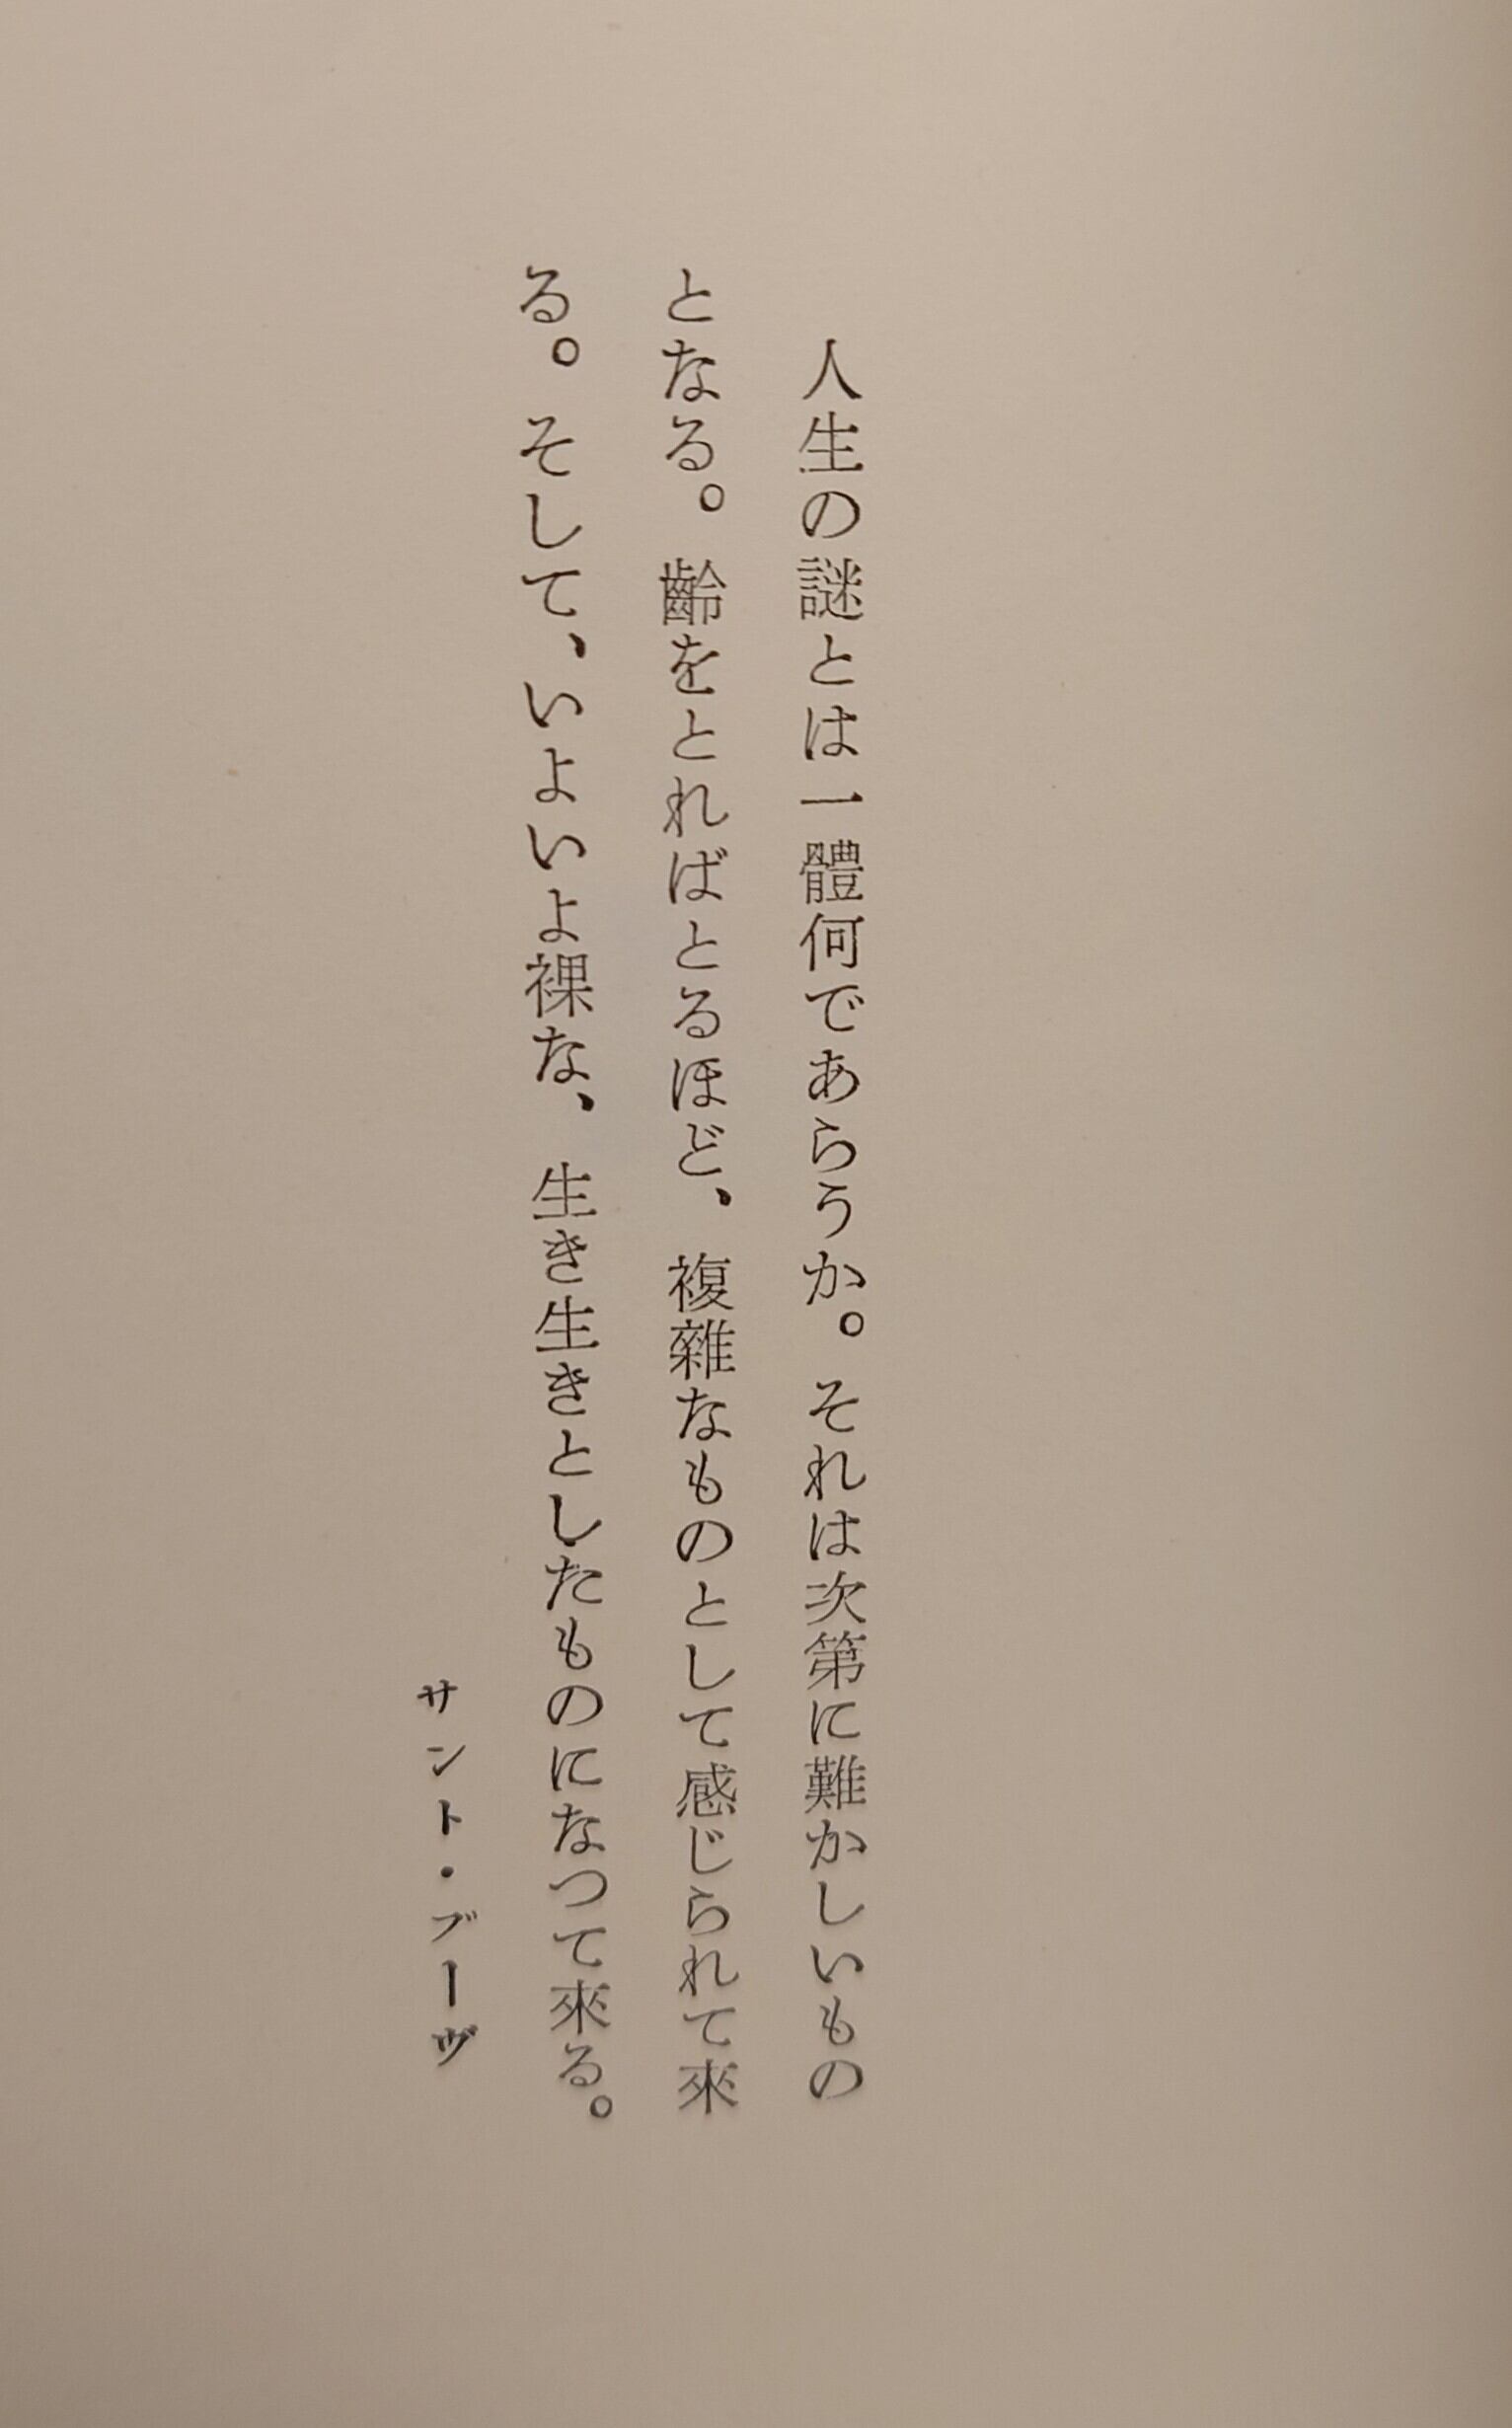 人生の謎とは一體何であらうか。それは次第に難かしいもの
となる。齡をとればとるほど、複雜なものとして感じられて來
る。そして、いよいよ裸な、生き生きとしたものになつて來る。
サント・ブーヴ